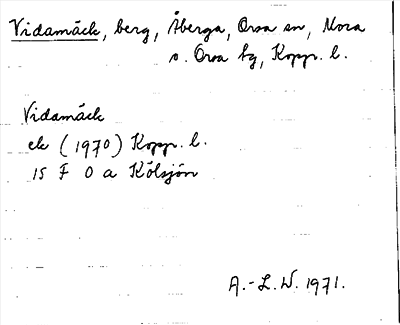 Vidamäck, berg, Åberga, Orsa sn, Mora
o. Orsa tg, Kopp. l.
Vidamäck
ek (1970) Kopp. l.
15 F 0 a Kölsjön
A.-L.W. 1971.